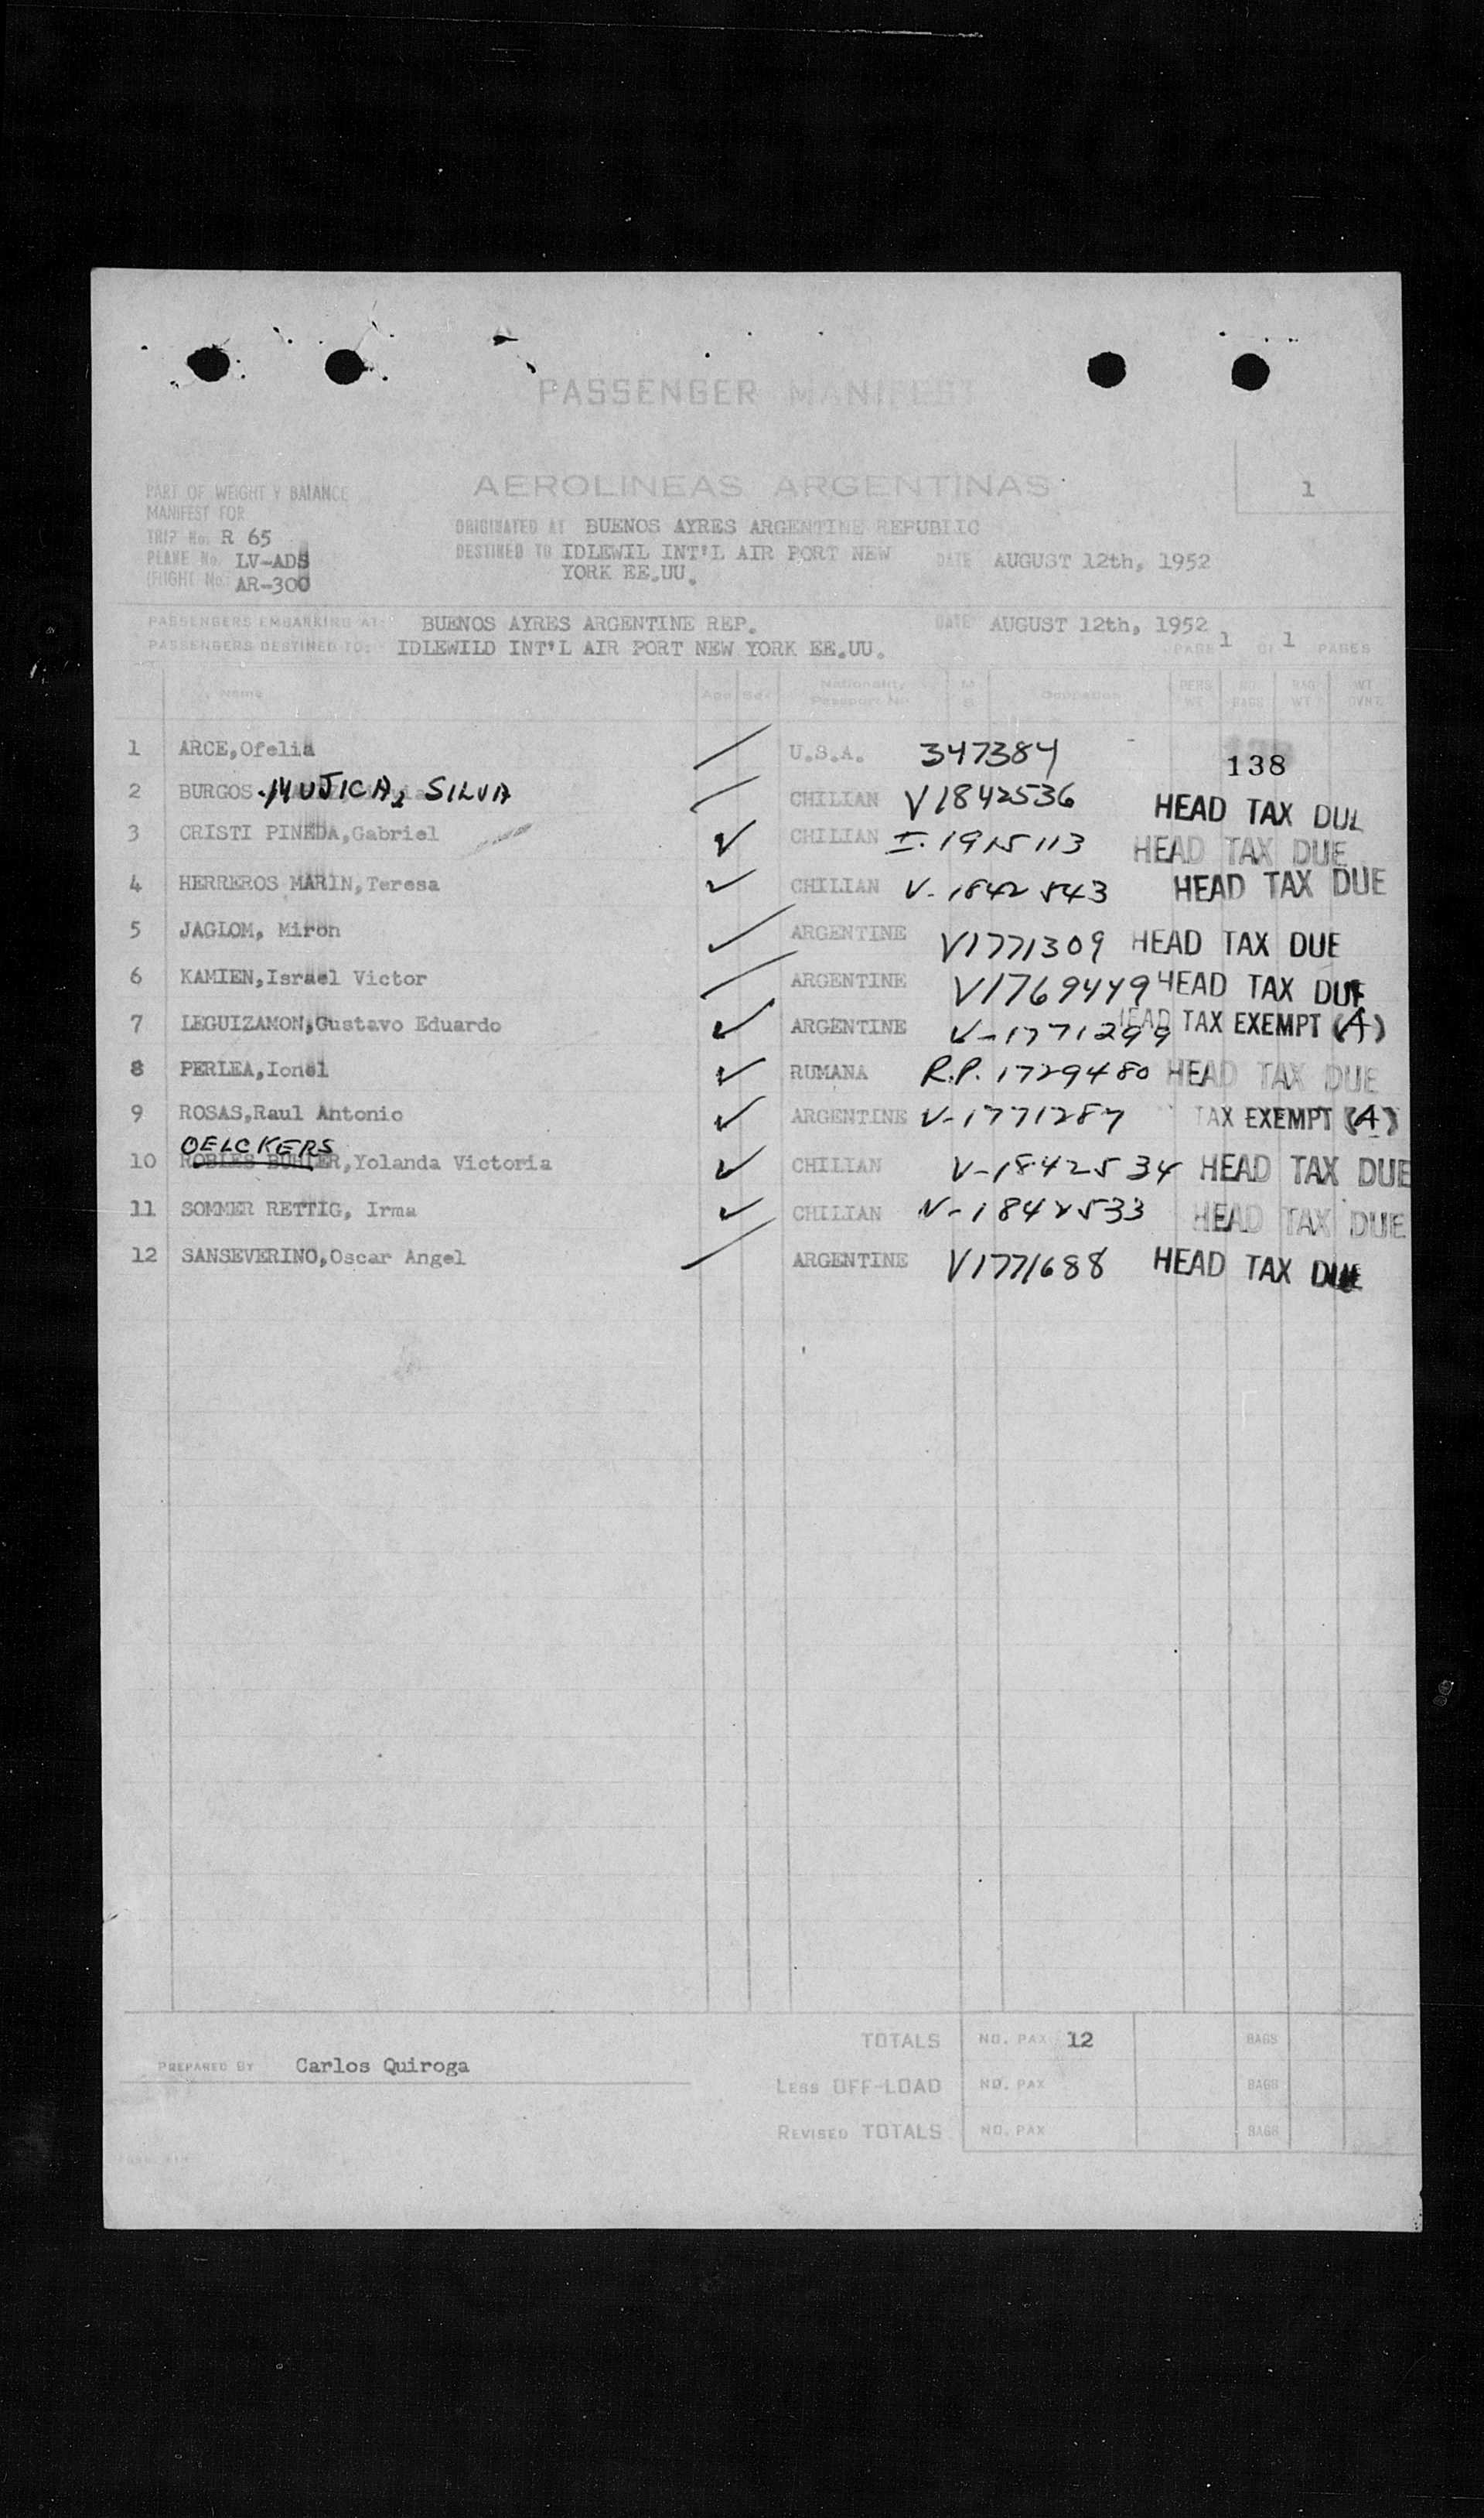 PASSENGER MANIFEST
AEROLINEAS ARGENTINAS
1
PART OF WEIGHT Y BALANCE
MANIFEST FOR
TRIP No. R 65
PLANE No. LV-ADS
(FLIGHT No. AR-300
ORIGINATED AT BUENOS AYRES ARGENTINE REPUBLIC
DESTINED TO IDLEWIL INT'L AIR PORT NEW YORK EE.UU.
DATE AUGUST 12th, 1952
PASSENGERS EMBARKING AT: BUENOS AYRES ARGENTINE REP. DATE AUGUST 12th, 1952
PASSENGERS DESTINED TO: IDLEWILD INT'L AIR PORT NEW YORK EE.UU. PAGE 1 OF 1 PAGES
Name Age Sex Nationality Passport No M S Occupation PERS WT NO. BAGS BAG WT
1 ARCE,Ofelia U.S.A. 347384 138
2 BURGOS MUJICA, SILVA CHILIAN V1842536 HEAD TAX DUE
3 CRISTI PINEDA,Gabriel CHILIAN I. 1915113 HEAD TAX DUE
4 HERREROS MARIN,Teresa CHILIAN V-1842543 HEAD TAX DUE
5 JAGLOM, Miron ARGENTINE V1771309 HEAD TAX DUE
6 KAMIEN,Israel Victor ARGENTINE V1769449 HEAD TAX DUE
7 LEGUIZAMON,Gustavo Eduardo ARGENTINE V-1771299 HEAD TAX EXEMPT (A)
8 PERLEA,Ionel RUMANA R.P. 1729480 HEAD TAX DUE
9 ROSAS,Raul Antonio ARGENTINE V-1771287 TAX EXEMPT (A)
OELCKERS
10 ROBLES BUHLER,Yolanda Victoria CHILIAN V-1842534 HEAD TAX DUE
11 SOMMER RETTIG, Irma CHILIAN V-1842533 HEAD TAX DUE
12 SANSEVERINO,Oscar Angel ARGENTINE V1771688 HEAD TAX DUE
TOTALS NO. PAX 12 BAGS
PREPARED BY Carlos Quiroga
LESS OFF-LOAD NO. PAX BAGS
REVISED TOTALS NO. PAX BAGS